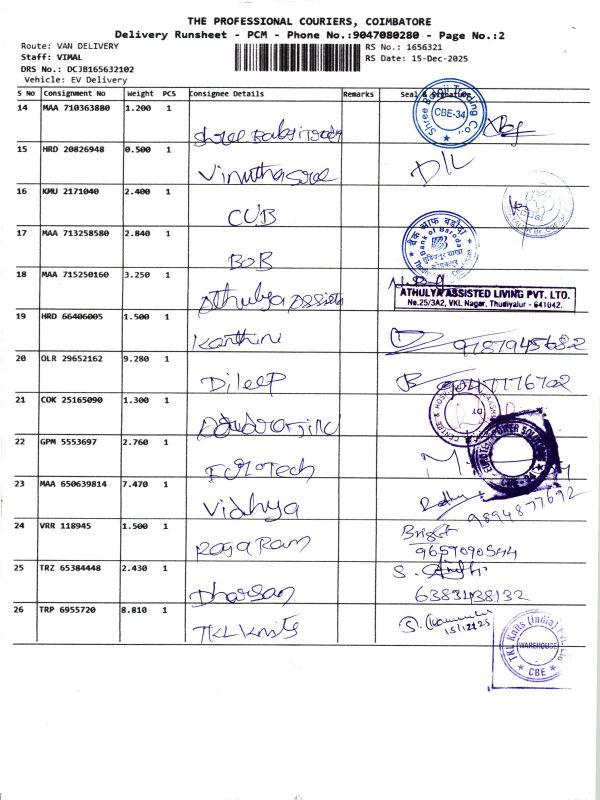 THE PROFESSIONAL COURIERS, COIMBATORE
Delivery Runsheet - PCM - Phone No.:9047080280 - Page No.:2
Route: VAN DELIVERY
RS No.: 1656321
Staff: VIMAL
RS Date: 15-Dec-2025
DRS No.: DCJB165632102
Vehicle: EV Delivery
S No Consignment No Weight PCS Consignee Details Remarks Seal & Signature
14 MAA 710363880 1.200 1
Shree Balaji Trading Co. CBE-34
15 HRD 20826948 0.500 1
Vinuthasree
16 KMU 2171040 2.400 1
CUB
17 MAA 713258580 2.840 1
BOB
बैंक आफ बड़ौदा
Bank of Baroda
18 MAA 715250160 3.250 1
Athulya Assiste
ATHULYA ASSISTED LIVING PVT. LTD.
No.25/3A2, VKL Nagar, Thudiyalur - 641042.
19 HRD 66406005 1.500 1
9787945682
20 OLR 29652162 9.280 1
Dileep
9047776702
21 COK 25165090 1.300 1
22 GPM 5553697 2.760 1
23 MAA 650639814 7.470 1
Vidhya
9894877692
24 VRR 118945 1.500 1
Roga Ram
Bright
9657090544
25 TRZ 65384448 2.430 1
Dharsan
6383438132
26 TRP 6955720 8.810 1
TKL Knits
15/12/25
TKL Knits (India) Pvt. Ltd
WAREHOUSE
CBE